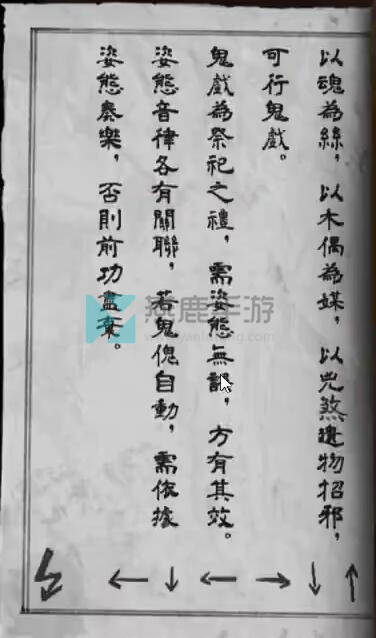 以魂為絲，以木偶為媒，以兇煞遺物招邪，
可行鬼戲。
鬼戲為祭祀之禮，需姿態無誤，方有其效。
姿態音律各有關聯，若鬼傀自動，需依據
姿態奏樂，否則前功盡棄。
↑ ↓ → ← ↓ ←
鹿手游